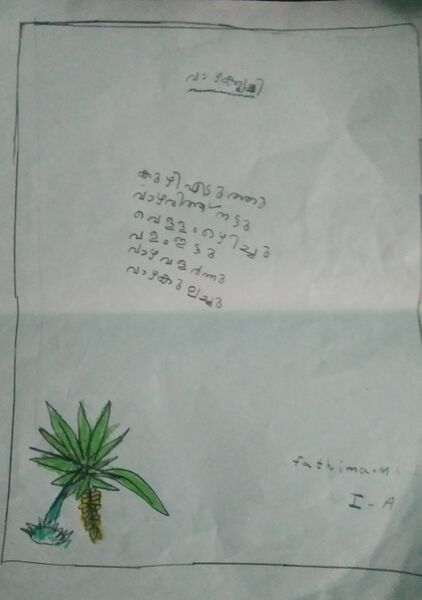 വാഴകൃഷി
കുഴി എടുത്തു
വാഴവിത്ത് നട്ടു
വെള്ളം ഒഴിച്ചു
വളം ഇട്ടു
വാഴ വളർന്നു
വാഴ കുലച്ചു
fathima.M
I - A